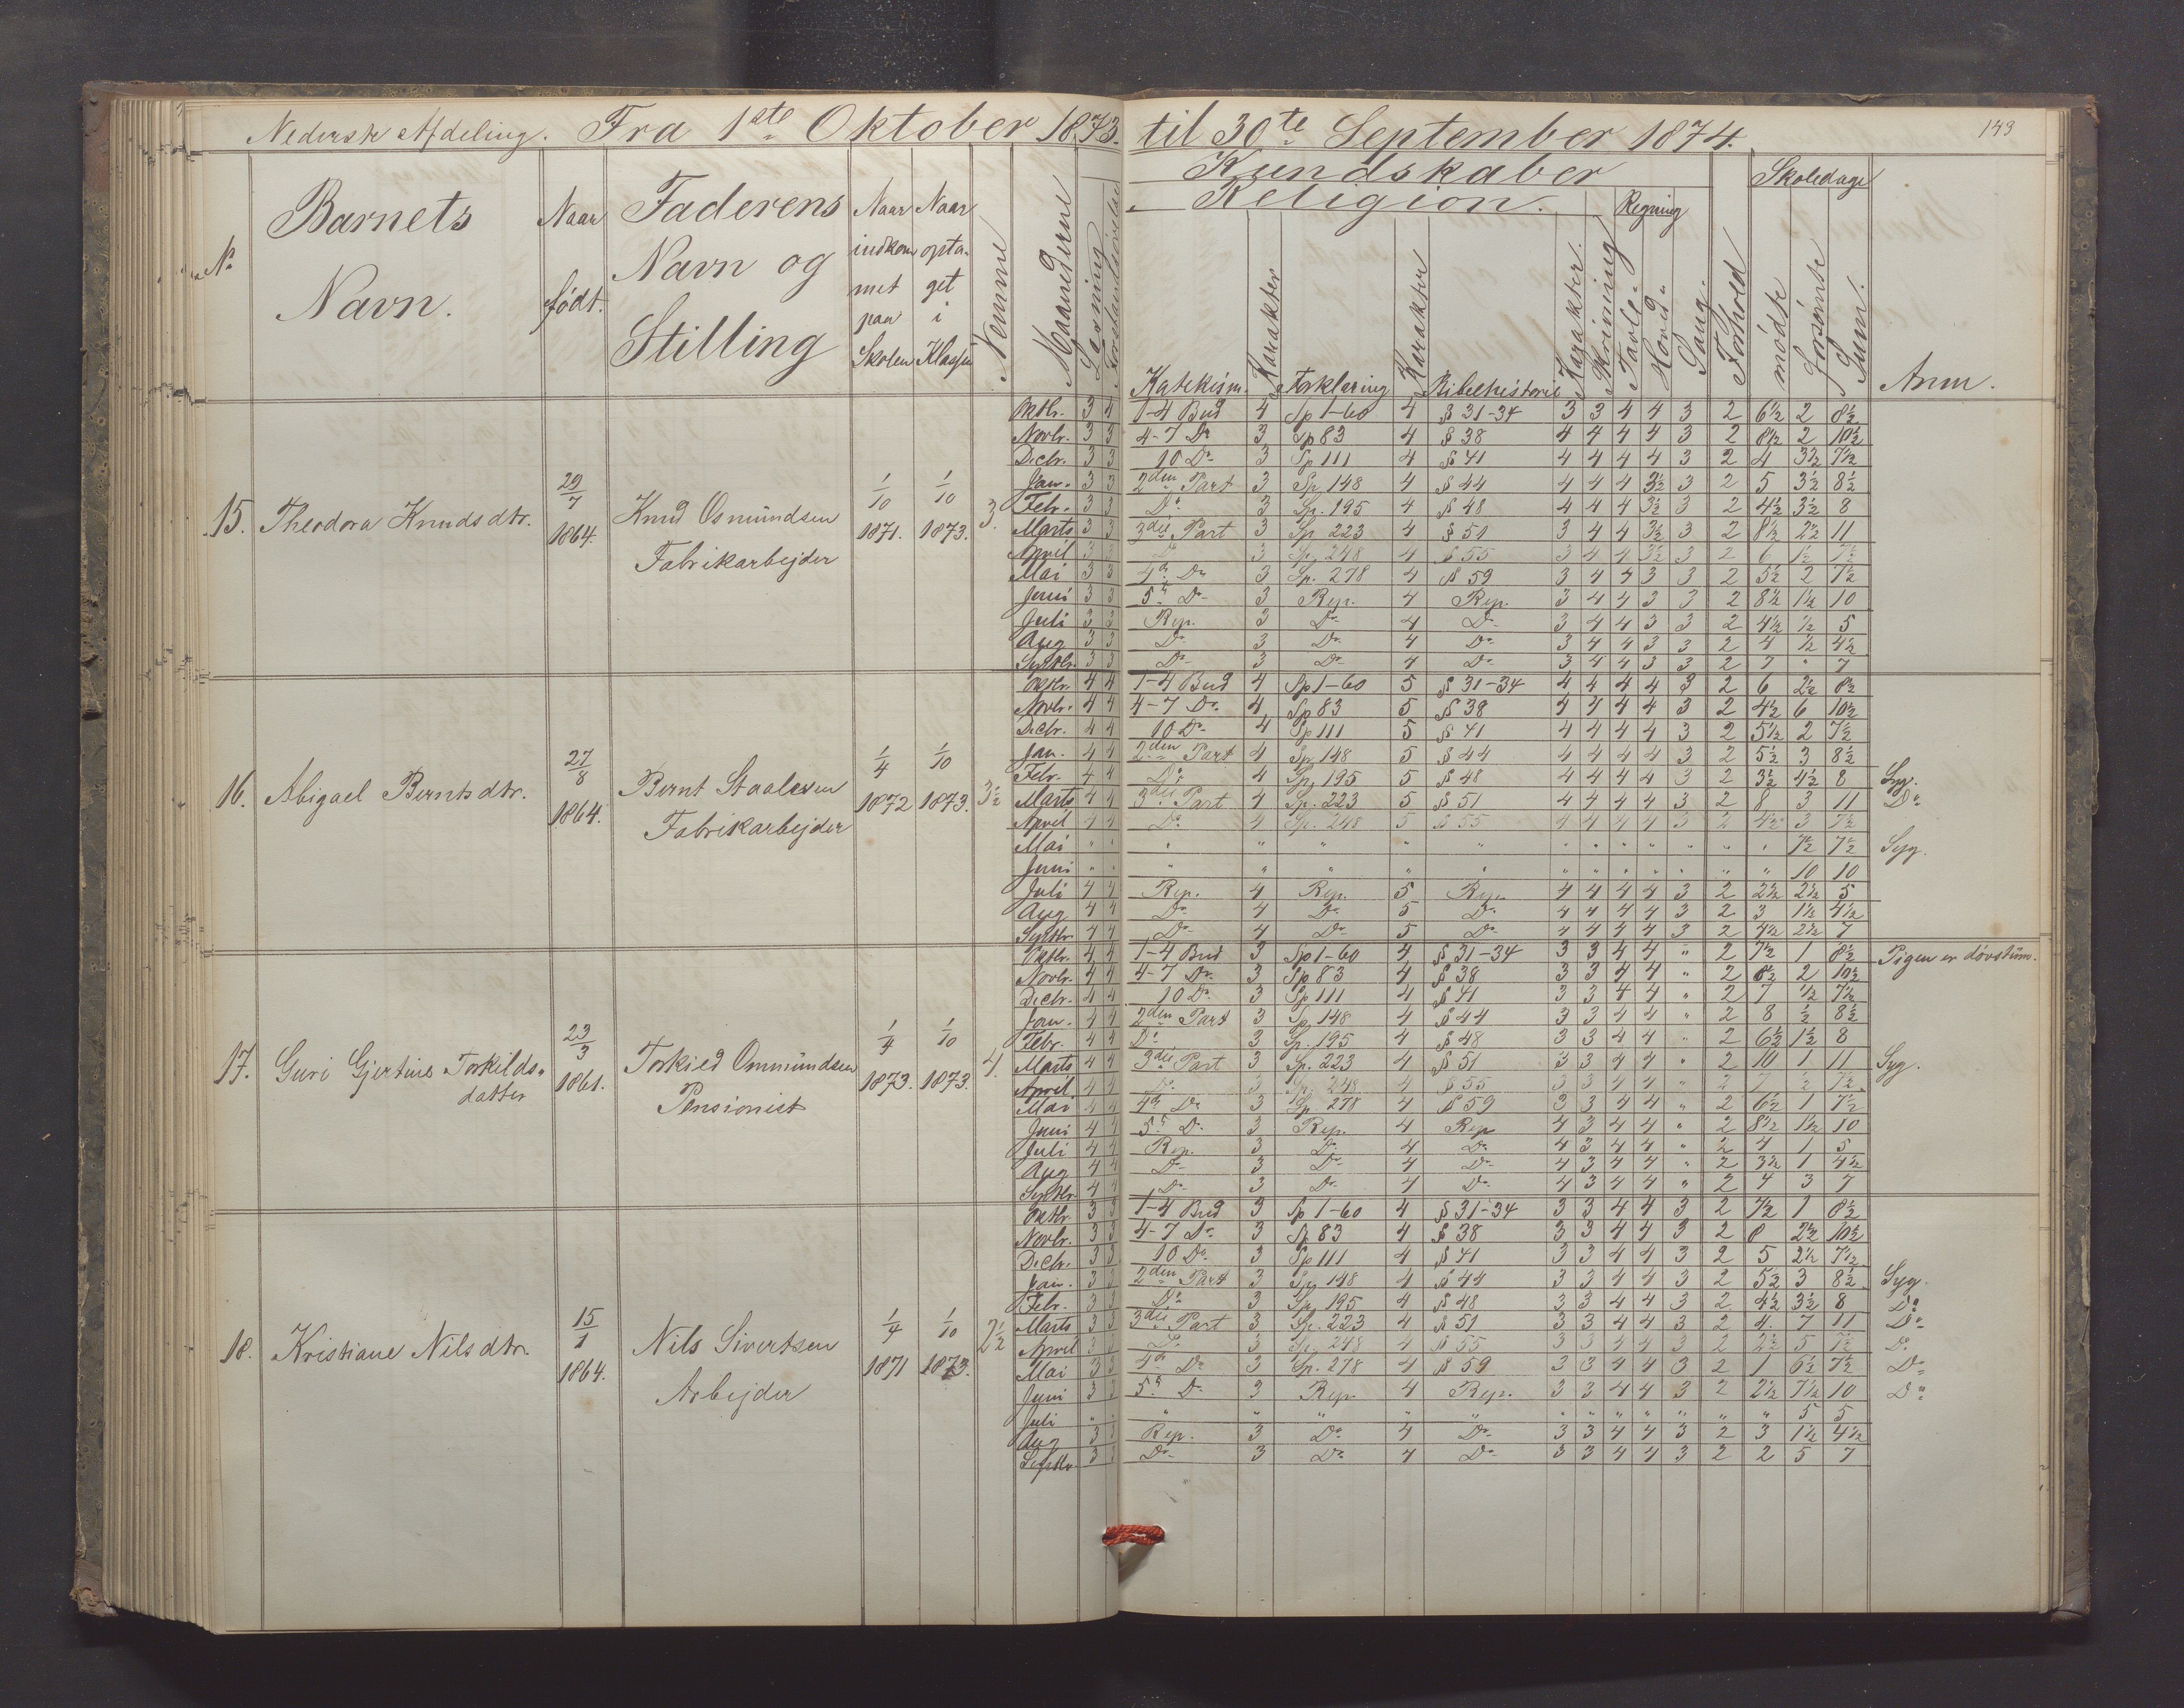 Nederste Afdeling. Fra 1ste Oktober 1873. til 30te September 1874. 143
No
Barnets Navn.
Naar født.
Faderens Navn og Stilling
Naar indkommet paa Skolen
Naar optaget i Klassen
Nemme
Maanederne
Læsning
Kundskaber
Religion.
Katekism. Karakter Forklaring Karakter Bibelhistorie Karakter.
Skrivning
Regning
Tavle- Hoved-
Sang.
Forhold
Skoledage
mødte forsømte Sum.
Anm.
15. Theodora Knudsdtr. 29/7 1864. Knud Osmundsen Fabrikarbejder 1/10 1871. 1/10 1873. 3.
Oktbr. 3 4 1-4 Bud 4 Sp 1-60 4 § 31-34 3 3 4 4 3 2 6½ 2 8½
Novbr. 3 3 4-7 Do 3 Sp 83 4 § 38 4 4 4 4 3 2 8½ 2 10½
Decbr. 3 3 10 Do 3 Sp 111 4 § 41 4 4 4 4 3 2 4 3½ 7½
Jan. 3 3 2den Part 3 Sp 148 4 § 44 4 4 4 3½ 3 2 5 3½ 8½
Febr. 3 3 Do 3 Sp. 195 4 § 48 4 4 4 3½ 3 2 4½ 3½ 8
Marts 3 3 3die Part 3 Sp 223 4 § 51 3 4 4 3½ 3 2 8½ 2½ 11
April 3 3 Do 3 Sp. 248 4 § 55 3 4 4 3½ 3 2 6 1½ 7½
Mai 3 3 4de Do 3 Sp. 278 4 § 59 3 4 4 3 3 2 5½ 2 7½
Juni 3 3 5te Do 3 Rep. 4 Rep. 3 4 4 3 3 2 8½ 1½ 10
Juli 3 3 Rep. 3 Do 4 Do 3 4 4 3 3 2 4½ ½ 5
Aug 3 3 Do 3 Do 4 Do 3 4 4 3 3 2 4 ½ 4½
Septbr. 3 3 Do 3 Do 4 Do 3 4 4 3 3 2 7 " 7
16. Abigael Berntsdtr. 27/8 1864. Bernt Staalesen Fabrikarbejder 1/4 1872 1/10 1873. 3½
Oktbr. 4 4 1-4 Bud 4 Sp 1-60 5 § 31-34 4 4 4 4 3 2 6 2½ 8½
Novbr. 4 4 4-7 Do 4 Sp 83 5 § 38 4 4 4 4 3 2 4½ 6 10½
Decbr. 4 4 10 Do 4 Sp 111 5 § 41 4 4 4 4 3 2 5½ 2 7½
Jan. 4 4 2den Part 4 Sp 148 5 § 44 4 4 4 4 3 2 5½ 3 8½
Febr. 4 4 Do 4 Sp. 195 5 § 48 4 4 4 4 3 2 3½ 4½ 8 Syg.
Marts 4 4 3die Part 4 Sp. 223 5 § 51 4 4 4 4 3 2 8 3 11 Do
April 4 4 Do 4 Sp. 248 5 § 55 4 4 4 4 3 2 4½ 3 7½
Mai " " " " " " " " " " " " " " 7½ 7½ Syg.
Juni " " " " " " " " " " " " " " 10 10
Juli 4 4 Rep. 4 Rep. 5 Rep. 4 4 4 4 3 2 2½ 2½ 5
Aug 4 4 Do 4 Do 5 Do 4 4 4 4 3 2 3 1½ 4½
Septbr. 4 4 Do 4 Do 5 Do 4 4 4 4 3 2 4½ 2½ 7
17. Guri Gjertine Torkildsdatter 23/3 1861. Torkild Ommundsen Pensionist 1/4 1873. 1/10 1873. 4.
Oktbr. 4 4 1-4 Bud 3 Sp 1-60 4 § 31-34 3 3 4 4 " 2 7½ 1 8½ Pigen er døvstum.
Novbr. 4 4 4-7 Do 3 Sp 83 4 § 38 3 3 4 4 " 2 8½ 2 10½
Decbr. 4 4 10 Do 3 Sp 111 4 § 41 3 3 4 4 " 2 7 ½ 7½
Jan. 4 4 2den Part 3 Sp 148 4 § 44 3 3 4 4 " 2 8 ½ 8½
Febr. 4 4 Do 3 Sp. 195 4 § 48 3 3 4 4 " 2 6½ 1½ 8
Marts 4 4 3die Part 3 Sp. 223 4 § 51 3 3 4 4 " 2 10 1 11 Syg.
April 4 4 Do 3 Sp. 248 4 § 55 3 3 4 4 " 2 7 ½ 7½
Mai 4 4 4de Do 3 Sp. 278 4 § 59 3 3 4 4 " 2 6½ 1 7½
Juni 4 4 5te Do 3 Rep. 4 Rep 4 3 4 4 " 2 8½ 1½ 10
Juli 4 4 Rep. 3 Do 4 Do 4 3 4 4 " 2 4 1 5
Aug 4 4 Do 3 Do 4 Do 4 3 4 4 " 2 3½ 1 4½
Septbr. 4 4 Do 3 Do 4 Do 4 3 4 4 " 2 4 3 7
18. Kristiane Nilsdtr. 15/1 1864. Nils Sivertsen Arbejder 1/4 1871 1/10 1873. 2½
Oktbr. 3 3 1-4 Bud 3 Sp 1-60 4 § 31-34 3 3 4 4 3 2 7½ 1 8½
Novbr. 3 3 4-7 Do 3 Sp 83 4 § 38 3 3 4 4 3 2 8 2½ 10½
Decbr. 3 3 10 Do 3 Sp 111 4 § 41 3 3 4 4 3 2 5 2½ 7½
Jan. 3 3 2den Part 3 Sp 148 4 § 44 3 3 4 4 3 2 5½ 3 8½ Syg.
Febr. 3 3 Do 3 Sp. 195 4 § 48 3 3 4 4 3 2 4½ 3½ 8 Do
Marts 3 3 3die Part 3 Sp. 223 4 § 51 3 3 4 4 3 2 4 7 11 Do
April 3 3 Do 3 Sp. 248 4 § 55 3 3 4 4 3 2 2½ 5 7½ Do
Mai 3 3 4de Do 3 Sp. 278 4 § 59 3 3 4 4 3 2 1 6½ 7½ Do
Juni 3 3 5te Do 3 Rep. 4 Rep. 3 3 4 4 3 2 2½ 7½ 10 Do
Juli " " " " " " " " " " " " " " 5 5
Aug 3 3 Rep. 3 Do 4 Do 3 3 4 4 3 2 3 1½ 4½
Septbr. 3 3 Do 3 Do 4 Do 3 3 4 4 3 2 2 5 7